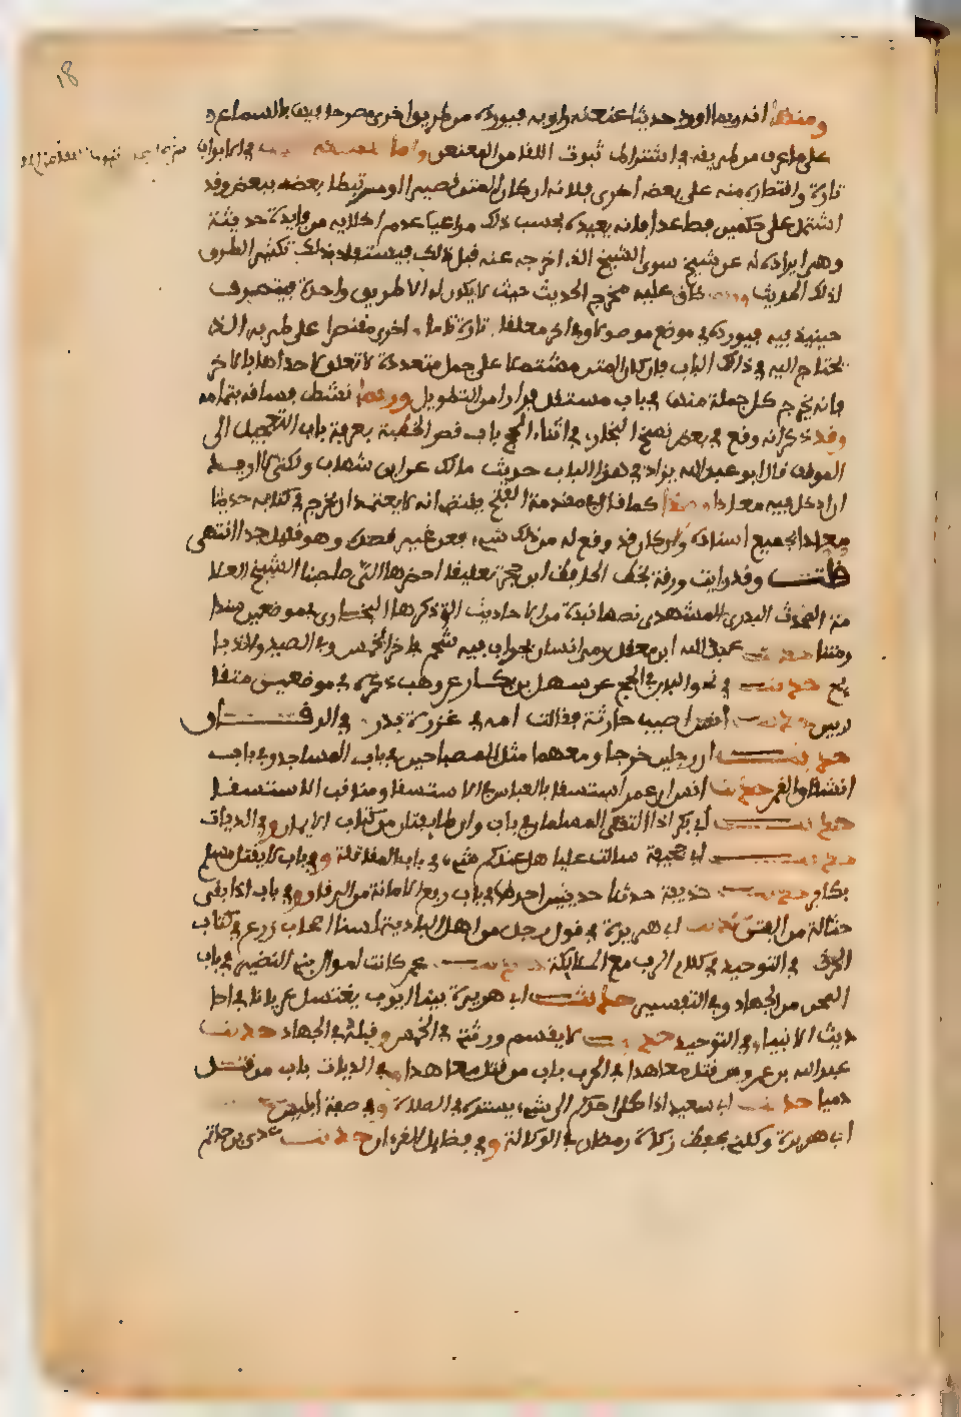 ومنها انه ربما اورد حديثا عنعنه راويه فيورده من طريق اخرى مصرحا فيها بالسماع
على ما عرف من طريقه في اشتراط ثبوت اللقا من المعنعن واما تقطيعه في الابواب
تارة واقتصاره منه على بعضه اخرى فلانه ان كان المتن قصيرا او مرتبطا بعضه ببعض وقد
اشتمل على حكمين فصاعدا فانه يعيده بحسب ذلك مراعيا عدم اخلايه من فايدة حديثية
وهي ايراده له عن شيخ سوى الشيخ الذي اخرجه عنه قبل ذلك فيستفاد بذلك تكثير الطرق
لذلك الحديث وربما ضاق عليه مخرج الحديث حيث لا يكون له الا طريق واحدة فيتصرف
حينيذ فيه فيورده في موضع موصولا وفي اخر معلقا تارة تاما واخرى مقتصرا على طرفه الذي
يحتاج اليه في ذلك الباب فان كان المتن مشتملا على جمل متعددة لا تعلق لاحداها بالاخرى
فانه يخرج كل جملة منها في باب مستقل فرارا من التطويل وربما نشط فساقه بتمامه
وقد ذكر انه وقع في بعض نسخ البخاري في اثناء الحج باب قصر الخطبة بعرفة باب التعجيل الى
الموقف قال ابو عبد الله يزاد في هذا الباب حديث مالك عن ابن شهاب ولكني لا اريد
ان ادخل فيه معادا وهذا كما قال في مقدمة الفتح يقتضي انه لا يتعمد ان يخرج في كتابه حديثا
معادا بجميع اسناده ومتنه وان كان قد وقع له من ذلك شيء فعن غير قصد وهو قليل جدا انتهى
قلت وقد رايت ورقة بخط الحافظ ابن حجر تعليقا احضرها الي صاحبنا الشيخ العلا
مة المحدث البدري المشهدي نصها نبذة من الاحاديث التي ذكرها البخاري في موضعين سندا
ومتنا حديث عبد الله ابن مغفل رمى انسان بجراب فيه شحم في اخر الخمس وفي الصيد والذبا
يح حديث في نحو البدن في الحج عن سهل بن بكار عن وهيب ذكره في موضعين متقا
ربين حديث انس اصيب حارثة فقالت امه في غزوة بدر وفي الرقاق
حديث ان رجلين خرجا ومعهما مثل المصباحين في باب المساجد وفي باب
انشقاق القمر حديث انس ان عمر استسقا بالعباس في الاستسقا ومناقب
حديث ابي بكرة اذا التقى المسلمان في باب وان طايفتان من كتاب الايمان وفي الديات
حديث ابي جحيفة سالت عليا هل عندكم شيء في باب المقاتلة وفي باب لا يقتل مسلم
بكافر حديث حذيفة حدثنا حديثين احدهما في باب رفع الامانة من الرقاق وفي باب اذا بقي
حثالة من الفتن حديث ابي هريرة في قول رجل من اهل البادية لسنا اصحاب زرع في كتاب
الحرث وفي التوحيد في كلام الرب مع الملايكة حديث عمر كانت اموال بني النضير في باب
المجن من الجهاد وفي التفسير حديث ابي هريرة بينا ايوب يغتسل عريانا في احا
ديث الانبياء وفي التوحيد حديث لا يقسم ورثتي في الخمس وقبله في الجهاد حديث
عبد الله بن عمرو من قتل معاهدا في الحرب باب من قتل معاهدا وفي الديات باب من قتل
ذميا حديث ابي سعيد اذا صلى احدكم الى شيء يستره في الصلاة وفي صفة ابليس حديث
ابي هريرة وكلني بحفظ زكاة رمضان في الوكالة وفي فضايل القرءان حديث عدي بن حاتم